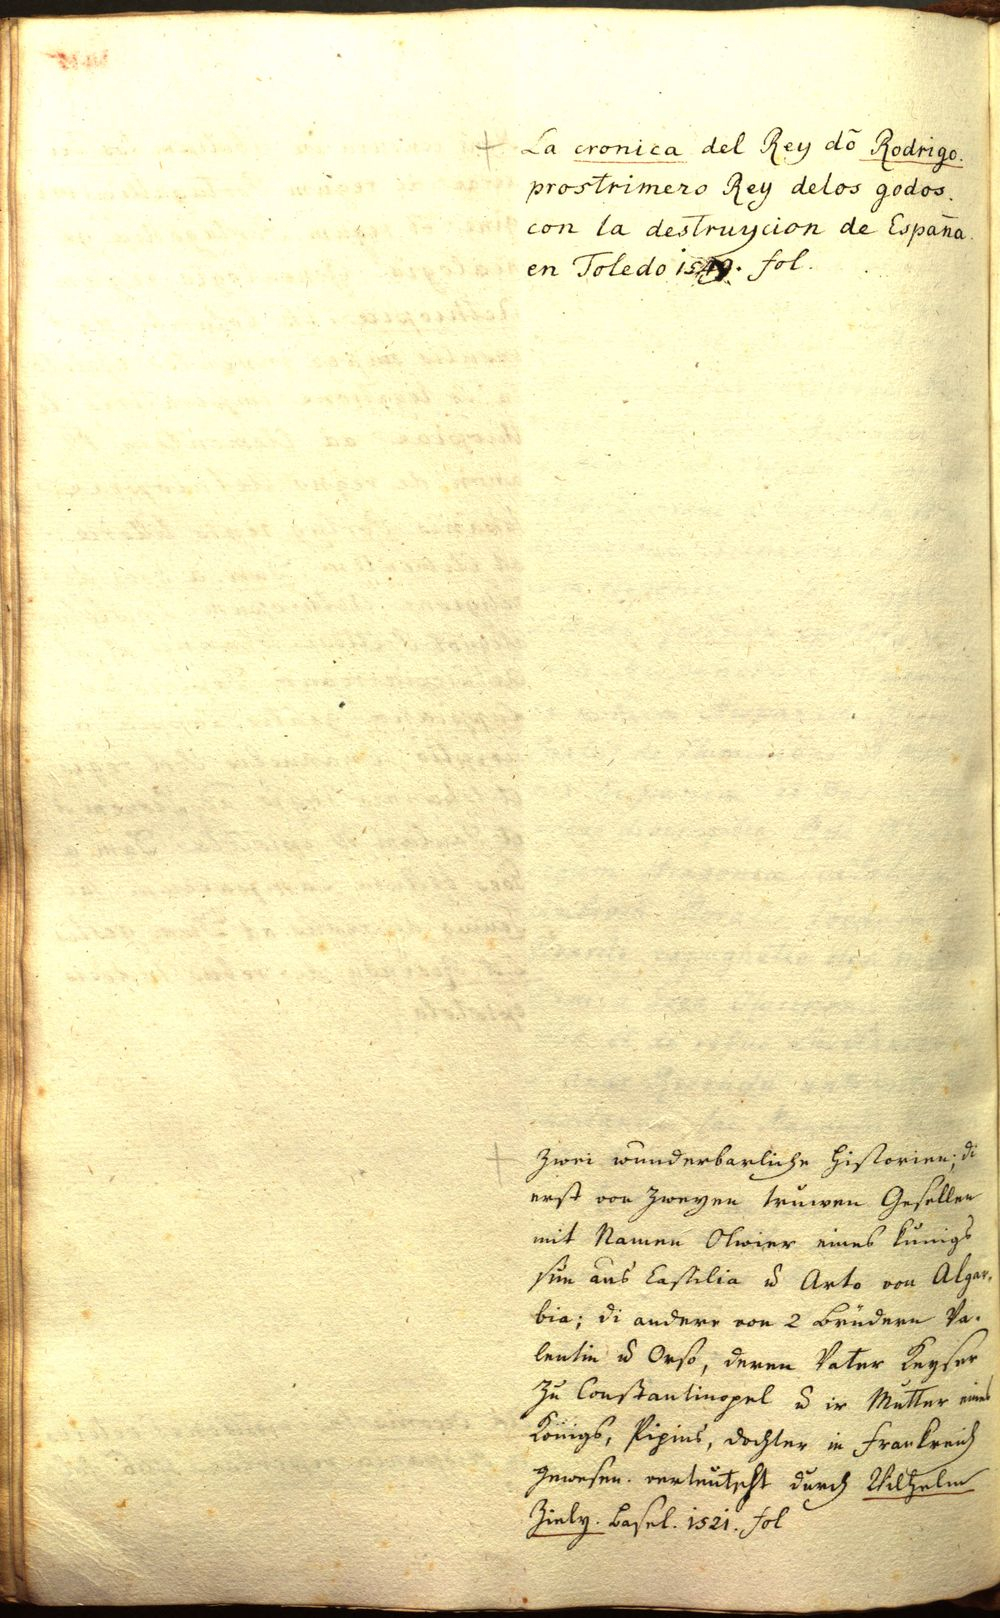 + La cronica del Rey dõ Rodrigo.
prostrimero Rey delos godos.
con la destruycion de España.
en Toledo 1549. fol.
+ Zwei wunderbarliche Historien; di
erst von zweyen truwen Gesellen
mit Namen Olwier eines kunigs
sun aus Castilia ū Arto von Algar-
bia; di andere von 2 Brüdern Va-
lentin ū Orso, deren Vater Keyser
zu Constantinopel ū ir Mutter eines
Königs, Pipins, dochter in Franckreich
gewesen. verteutscht durch Wilhelm
Ziely. Basel. 1521. fol